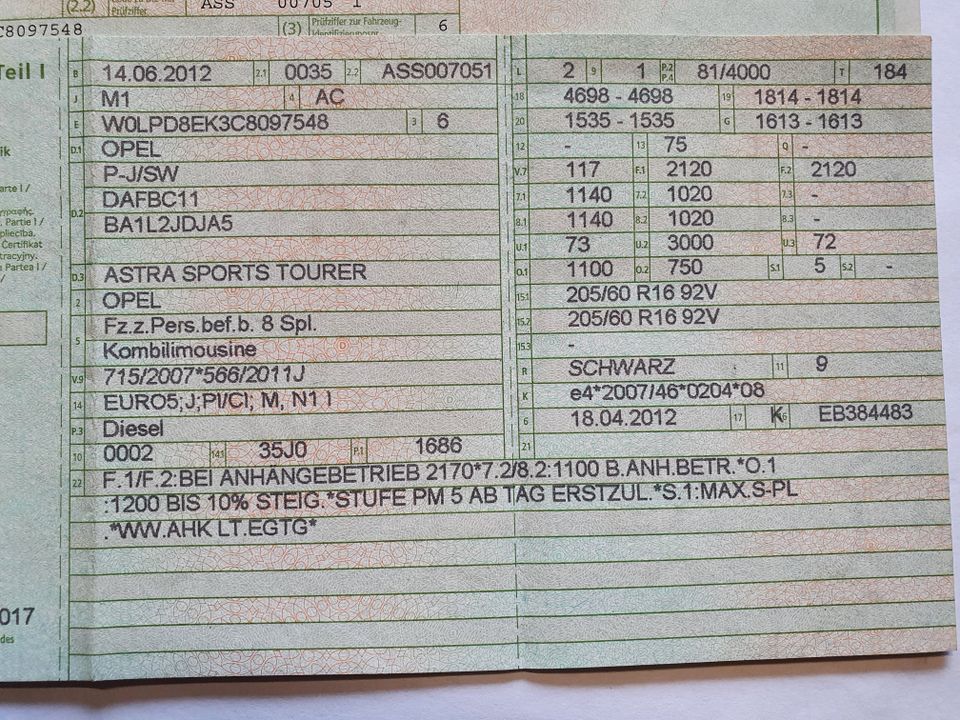 (2.2) Prüfziffer ASS 00705 1
C8097548 (3) Prüfziffer zur Fahrzeug-Identifizierungsnr. 6
Teil I
B 14.06.2012 2.1 0035 2.2 ASS007051 L 2 9 1 P.2 P.4 81/4000 T 184
J M1 4 AC 18 4698 - 4698 19 1814 - 1814
E W0LPD8EK3C8097548 3 6 20 1535 - 1535 G 1613 - 1613
D.1 OPEL 12 - 13 75 Q -
P-J/SW V.7 117 F.1 2120 F.2 2120
D.2 DAFBC11 7.1 1140 7.2 1020 7.3 -
BA1L2JDJA5 8.1 1140 8.2 1020 8.3 -
U.1 73 U.2 3000 U.3 72
D.3 ASTRA SPORTS TOURER O.1 1100 O.2 750 S.1 5 S.2 -
2 OPEL 15.1 205/60 R16 92V
5 Fz.z.Pers.bef.b. 8 Spl. 15.2 205/60 R16 92V
Kombilimousine 15.3 -
V.9 715/2007*566/2011J R SCHWARZ 11 9
14 EURO5;J;PI/CI; M, N1 I K e4*2007/46*0204*08
P.3 Diesel 6 18.04.2012 17 K 16 EB384483
10 0002 14.1 35J0 P.1 1686 21
22 F.1/F.2:BEI ANHÄNGEBETRIEB 2170*7.2/8.2:1100 B.ANH.BETR.*O.1
:1200 BIS 10% STEIG.*STUFE PM 5 AB TAG ERSTZUL.*S.1:MAX.S-PL
.*WW.AHK LT.EGTG*
017
des